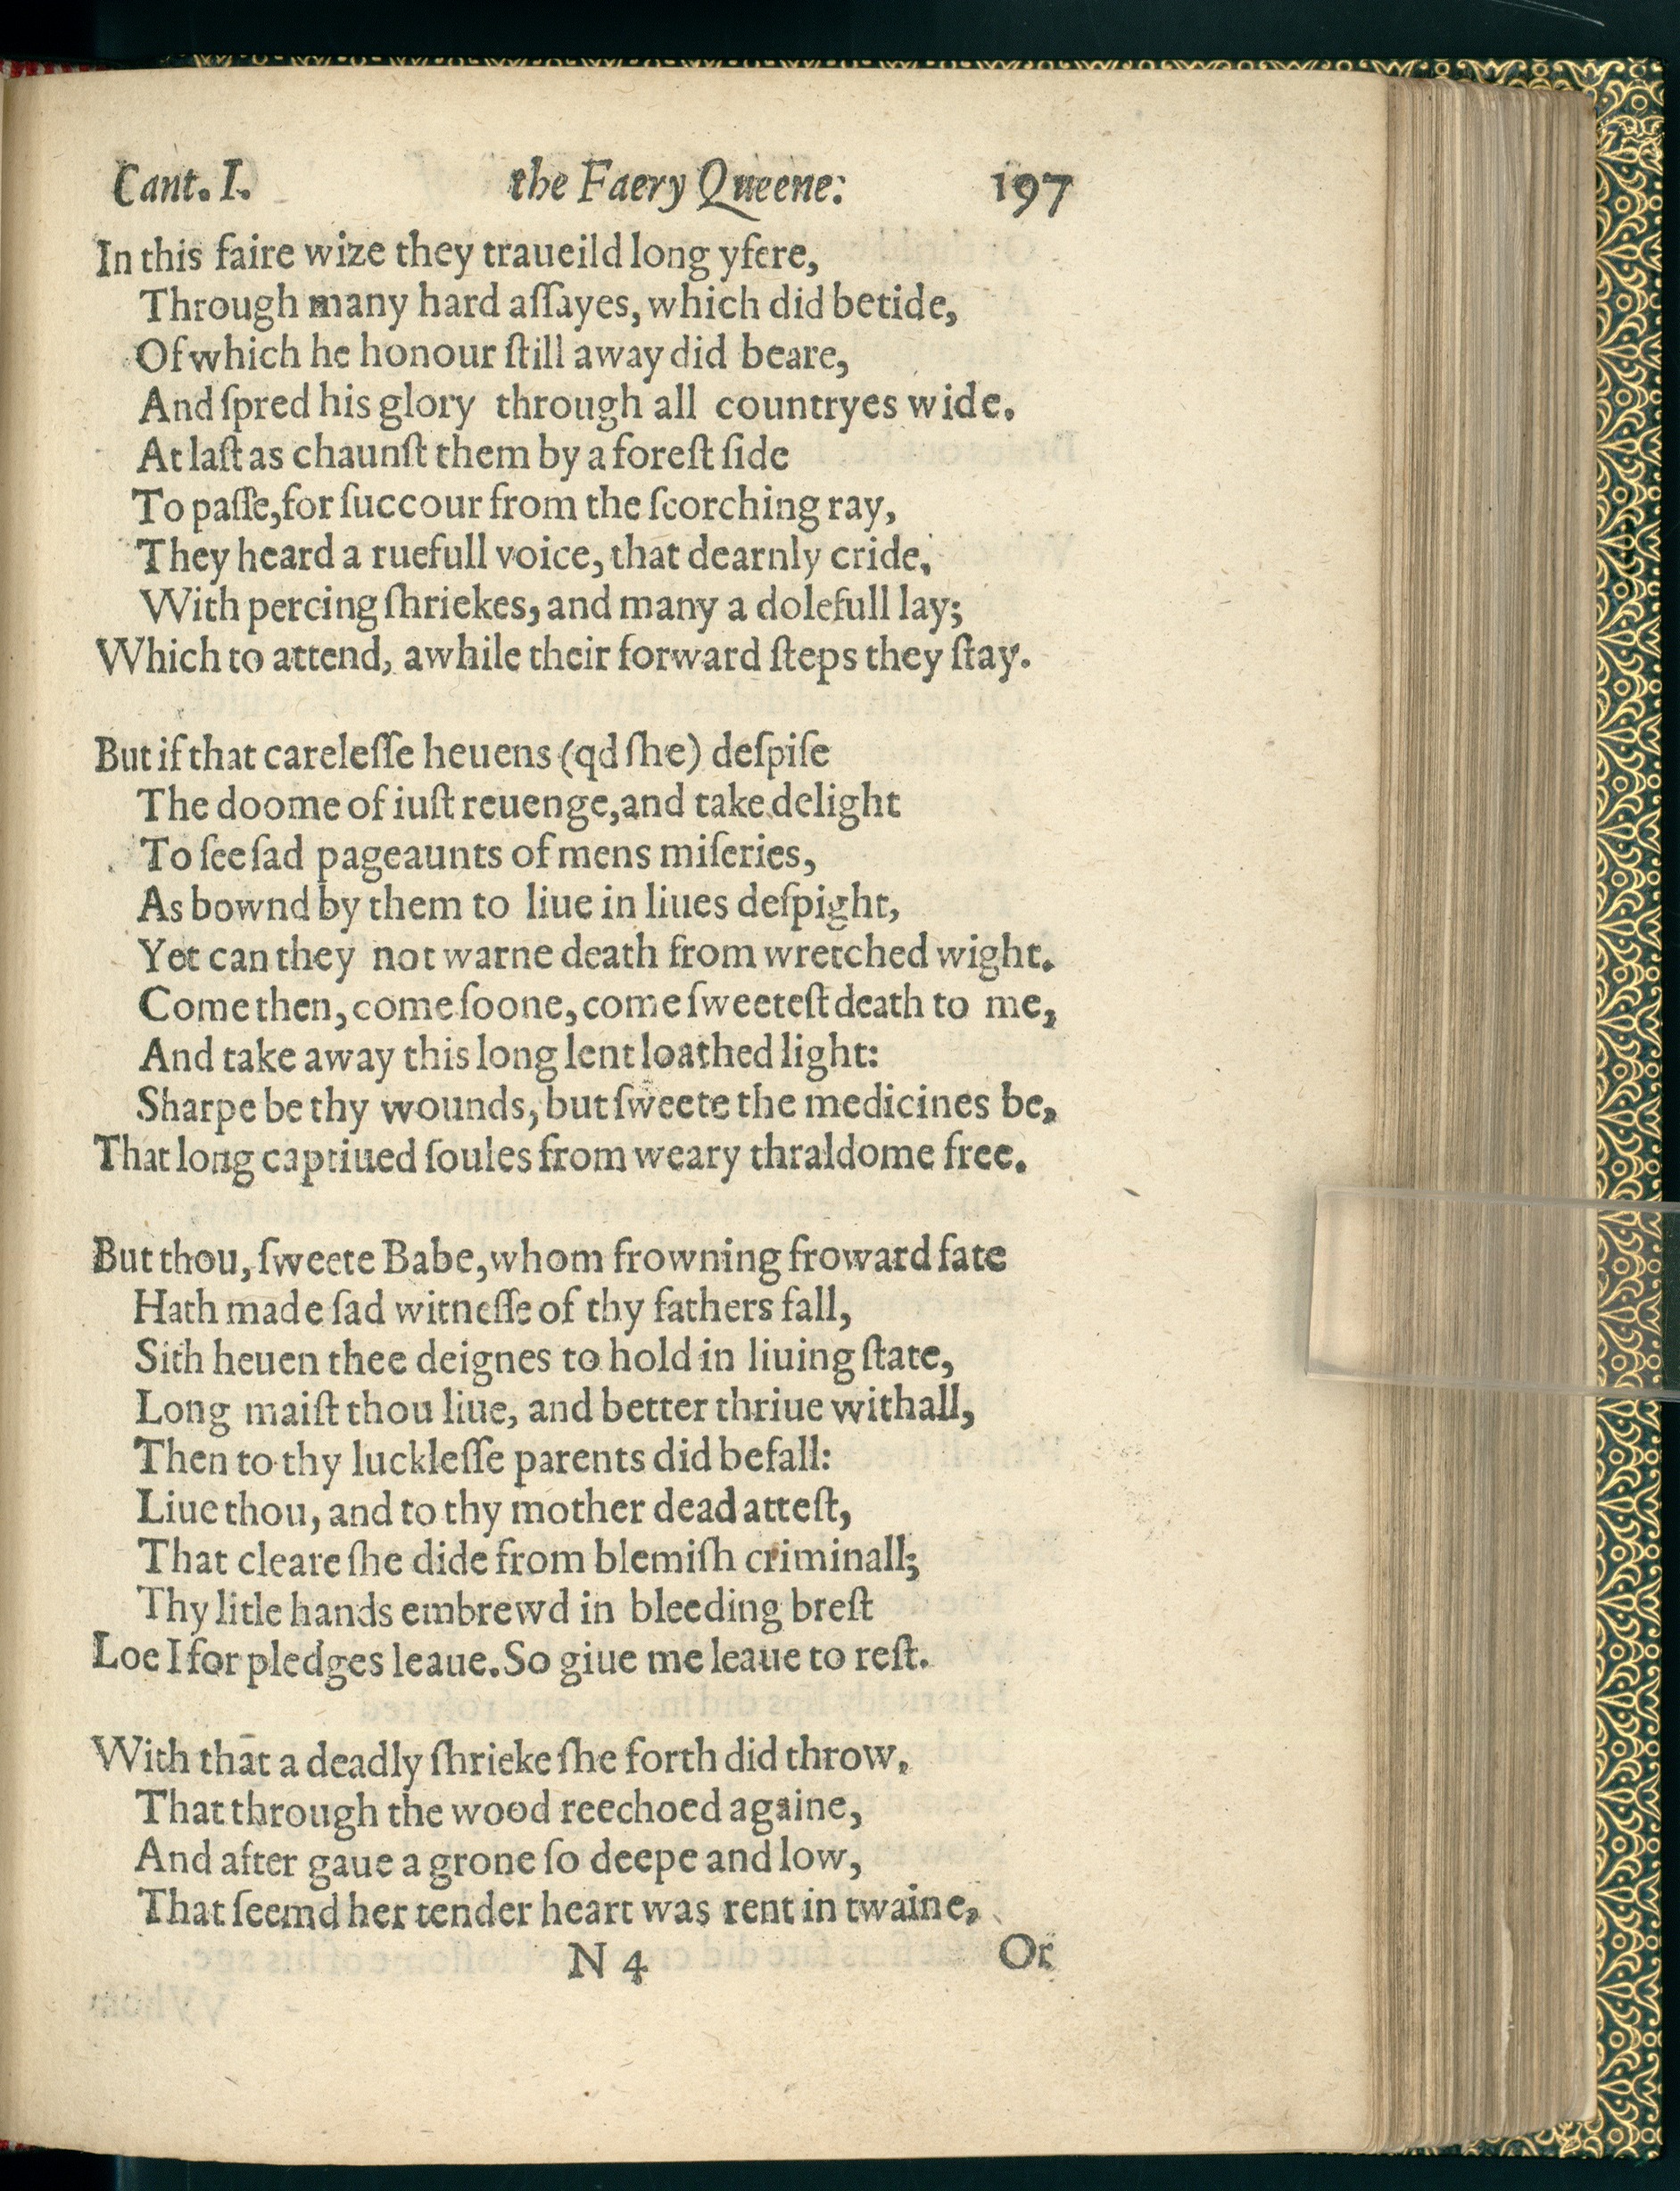 Cant. I. the Faery Queene: 197
In this faire wize they traueild long yfere,
Through many hard aſſayes, which did betide,
Of which he honour ſtill away did beare,
And ſpred his glory through all countryes wide.
At laſt as chaunſt them by a foreſt ſide
To paſſe, for ſuccour from the ſcorching ray,
They heard a ruefull voice, that dearnly cride,
With percing ſhriekes, and many a dolefull lay;
Which to attend, awhile their forward ſteps they ſtay.
But if that careleſſe heuens (qd ſhe) deſpiſe
The doome of iuſt reuenge, and take delight
To ſee ſad pageaunts of mens miſeries,
As bownd by them to liue in liues deſpight,
Yet can they not warne death from wretched wight.
Come then, come ſoone, come ſweeteſt death to me,
And take away this long lent loathed light:
Sharpe be thy wounds, but ſweete the medicines be,
That long captiued ſoules from weary thraldome free.
But thou, ſweete Babe, whom frowning froward fate
Hath made ſad witneſſe of thy fathers fall,
Sith heuen thee deignes to hold in liuing ſtate,
Long maiſt thou liue, and better thriue withall,
Then to thy luckleſſe parents did befall:
Liue thou, and to thy mother dead atteſt,
That cleare ſhe dide from blemiſh criminall;
Thy litle hands embrewd in bleeding breſt
Loe I for pledges leaue. So giue me leaue to reſt.
With that a deadly ſhrieke ſhe forth did throw,
That through the wood reechoed againe,
And after gaue a grone ſo deepe and low,
That ſeemd her tender heart was rent in twaine,
N 4 Or